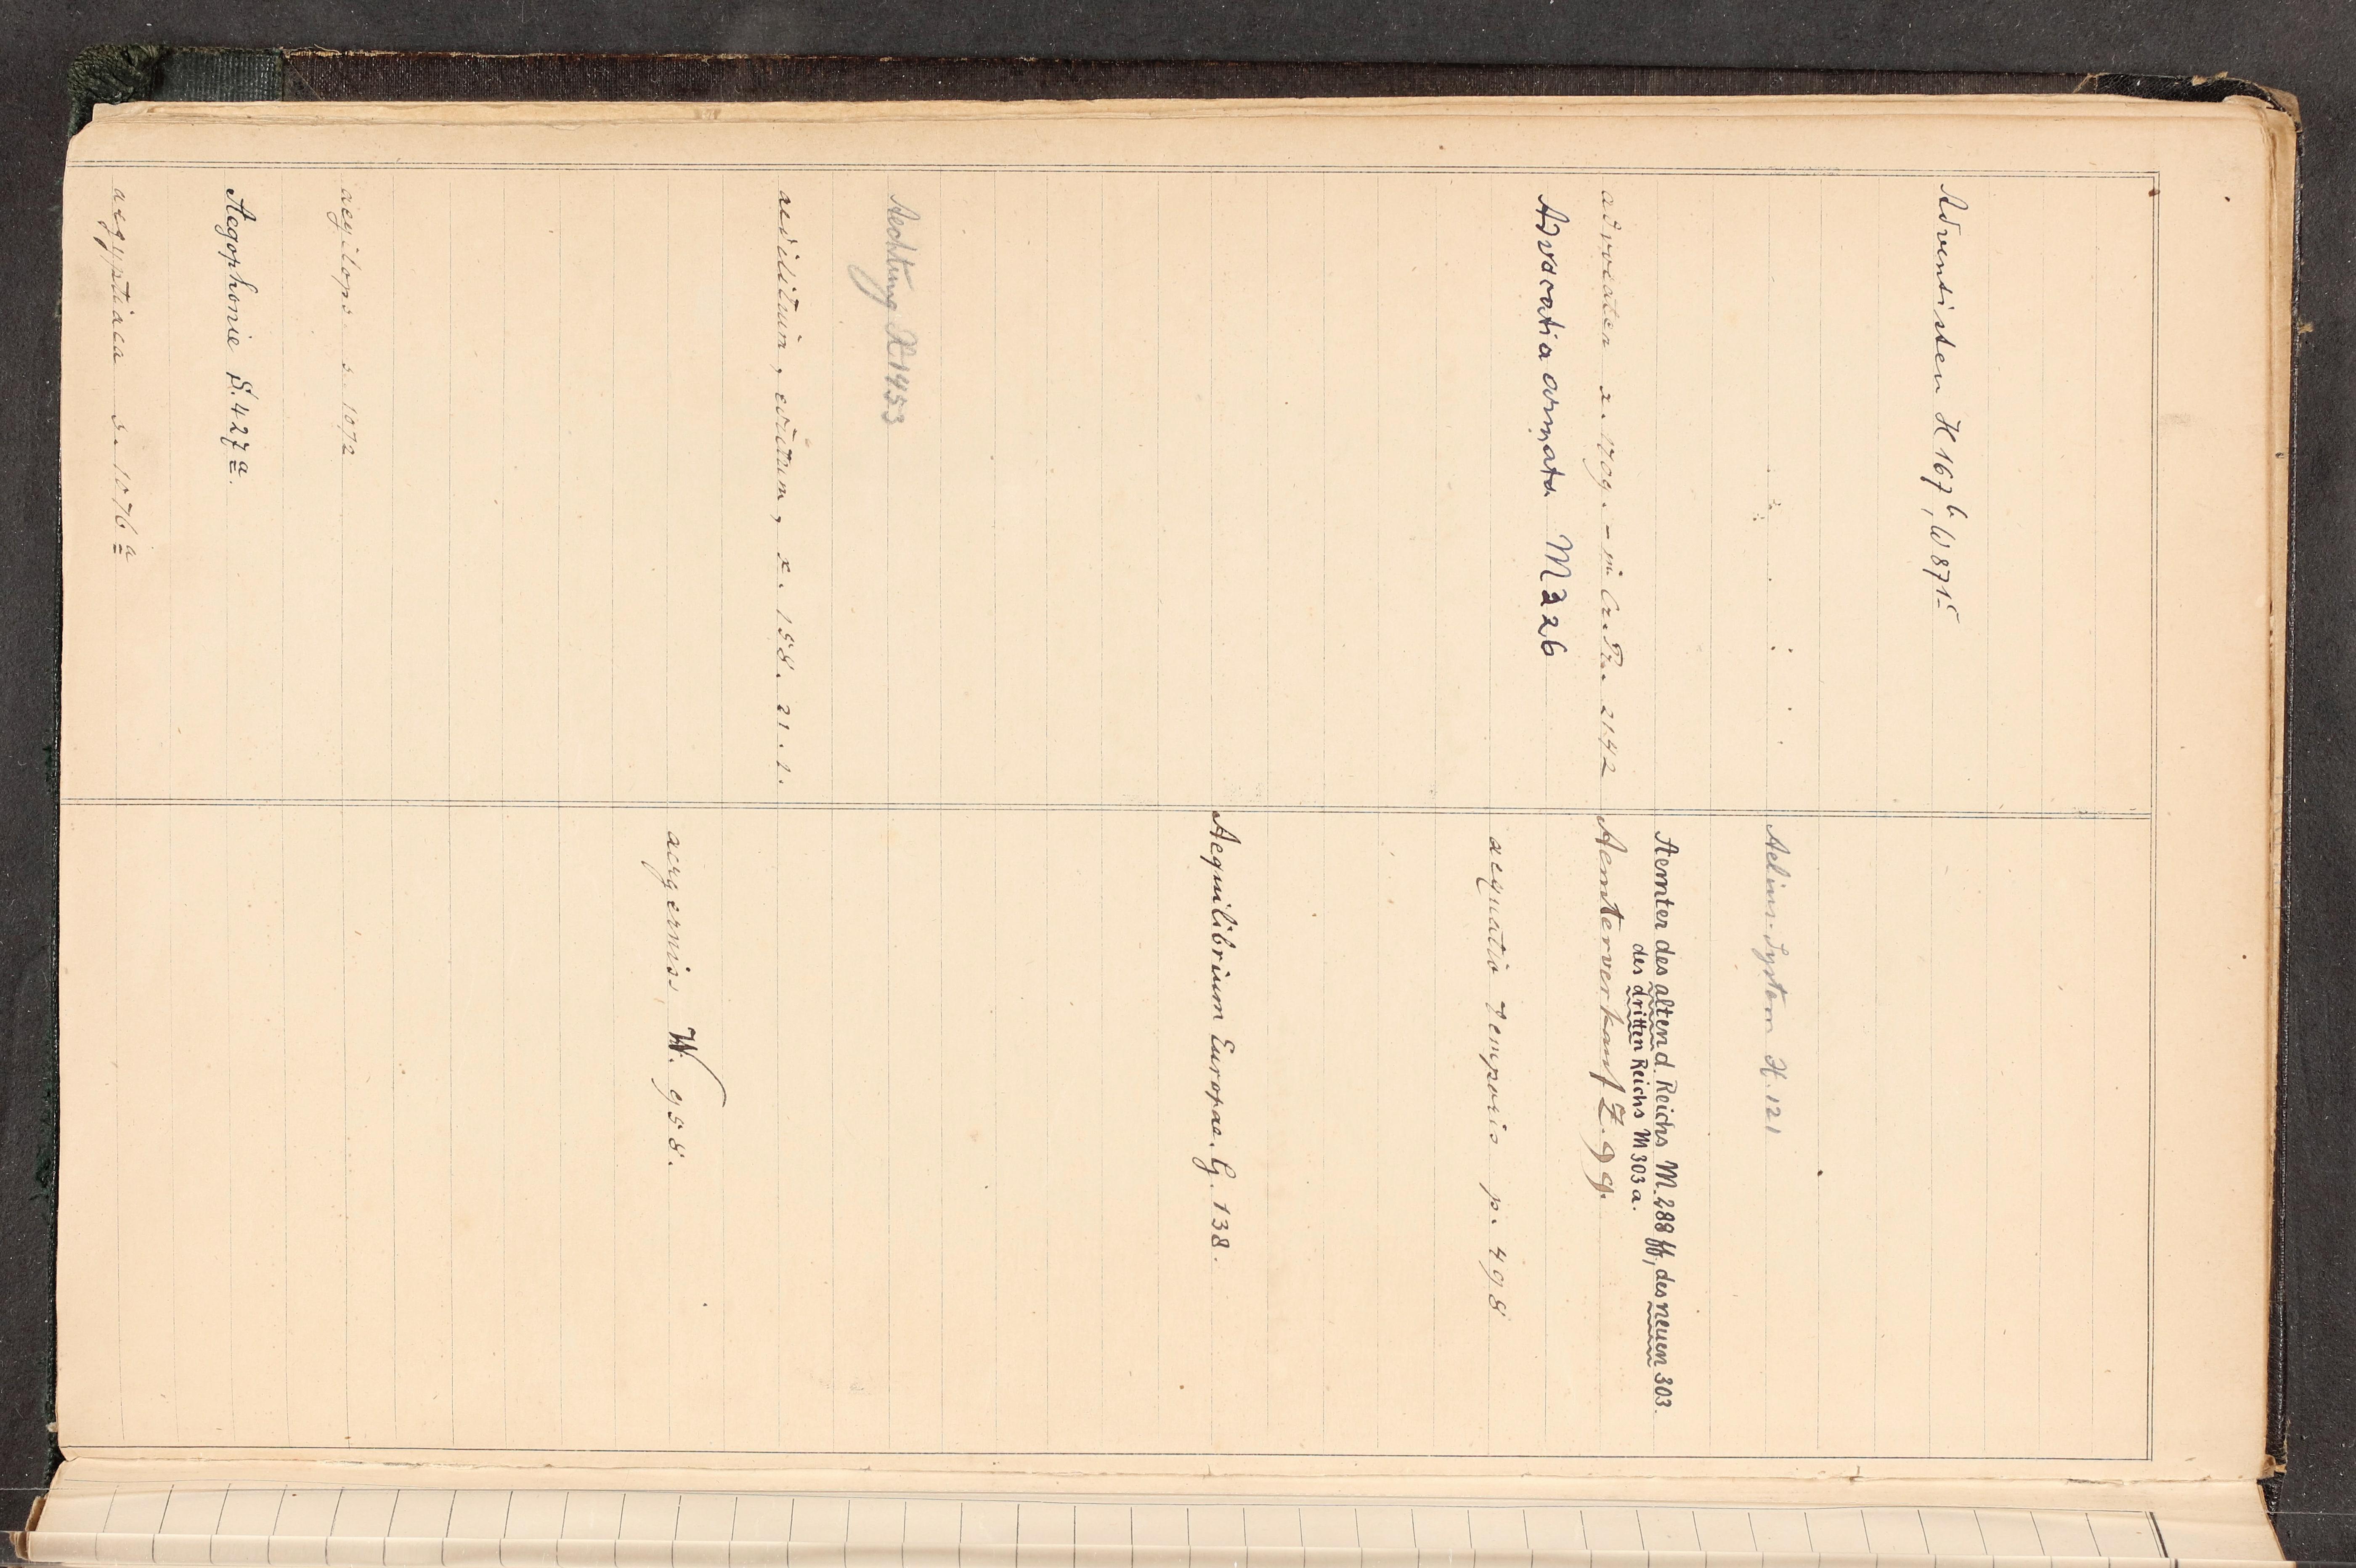 Adventisten H 167b, W 871c
advocaten x. 1709.
Advocatia armata M 226
Aechtung H 1453
aedilitium, edictum, x. 158. 21. 1.
aegilops s. 1072
Aegophonie S. 427a.
aegyptiaca s. 1076a
Aelinus-System H. 121
Aemter des alten d. Reichs M. 288 ff, des neuen 303.
des dritten Reichs M 303 a.
Aemterverkauf Z. 99.
aequatio temporis p. 498
Aequilibrium Europae. G. 138.
aergernis W. 958.